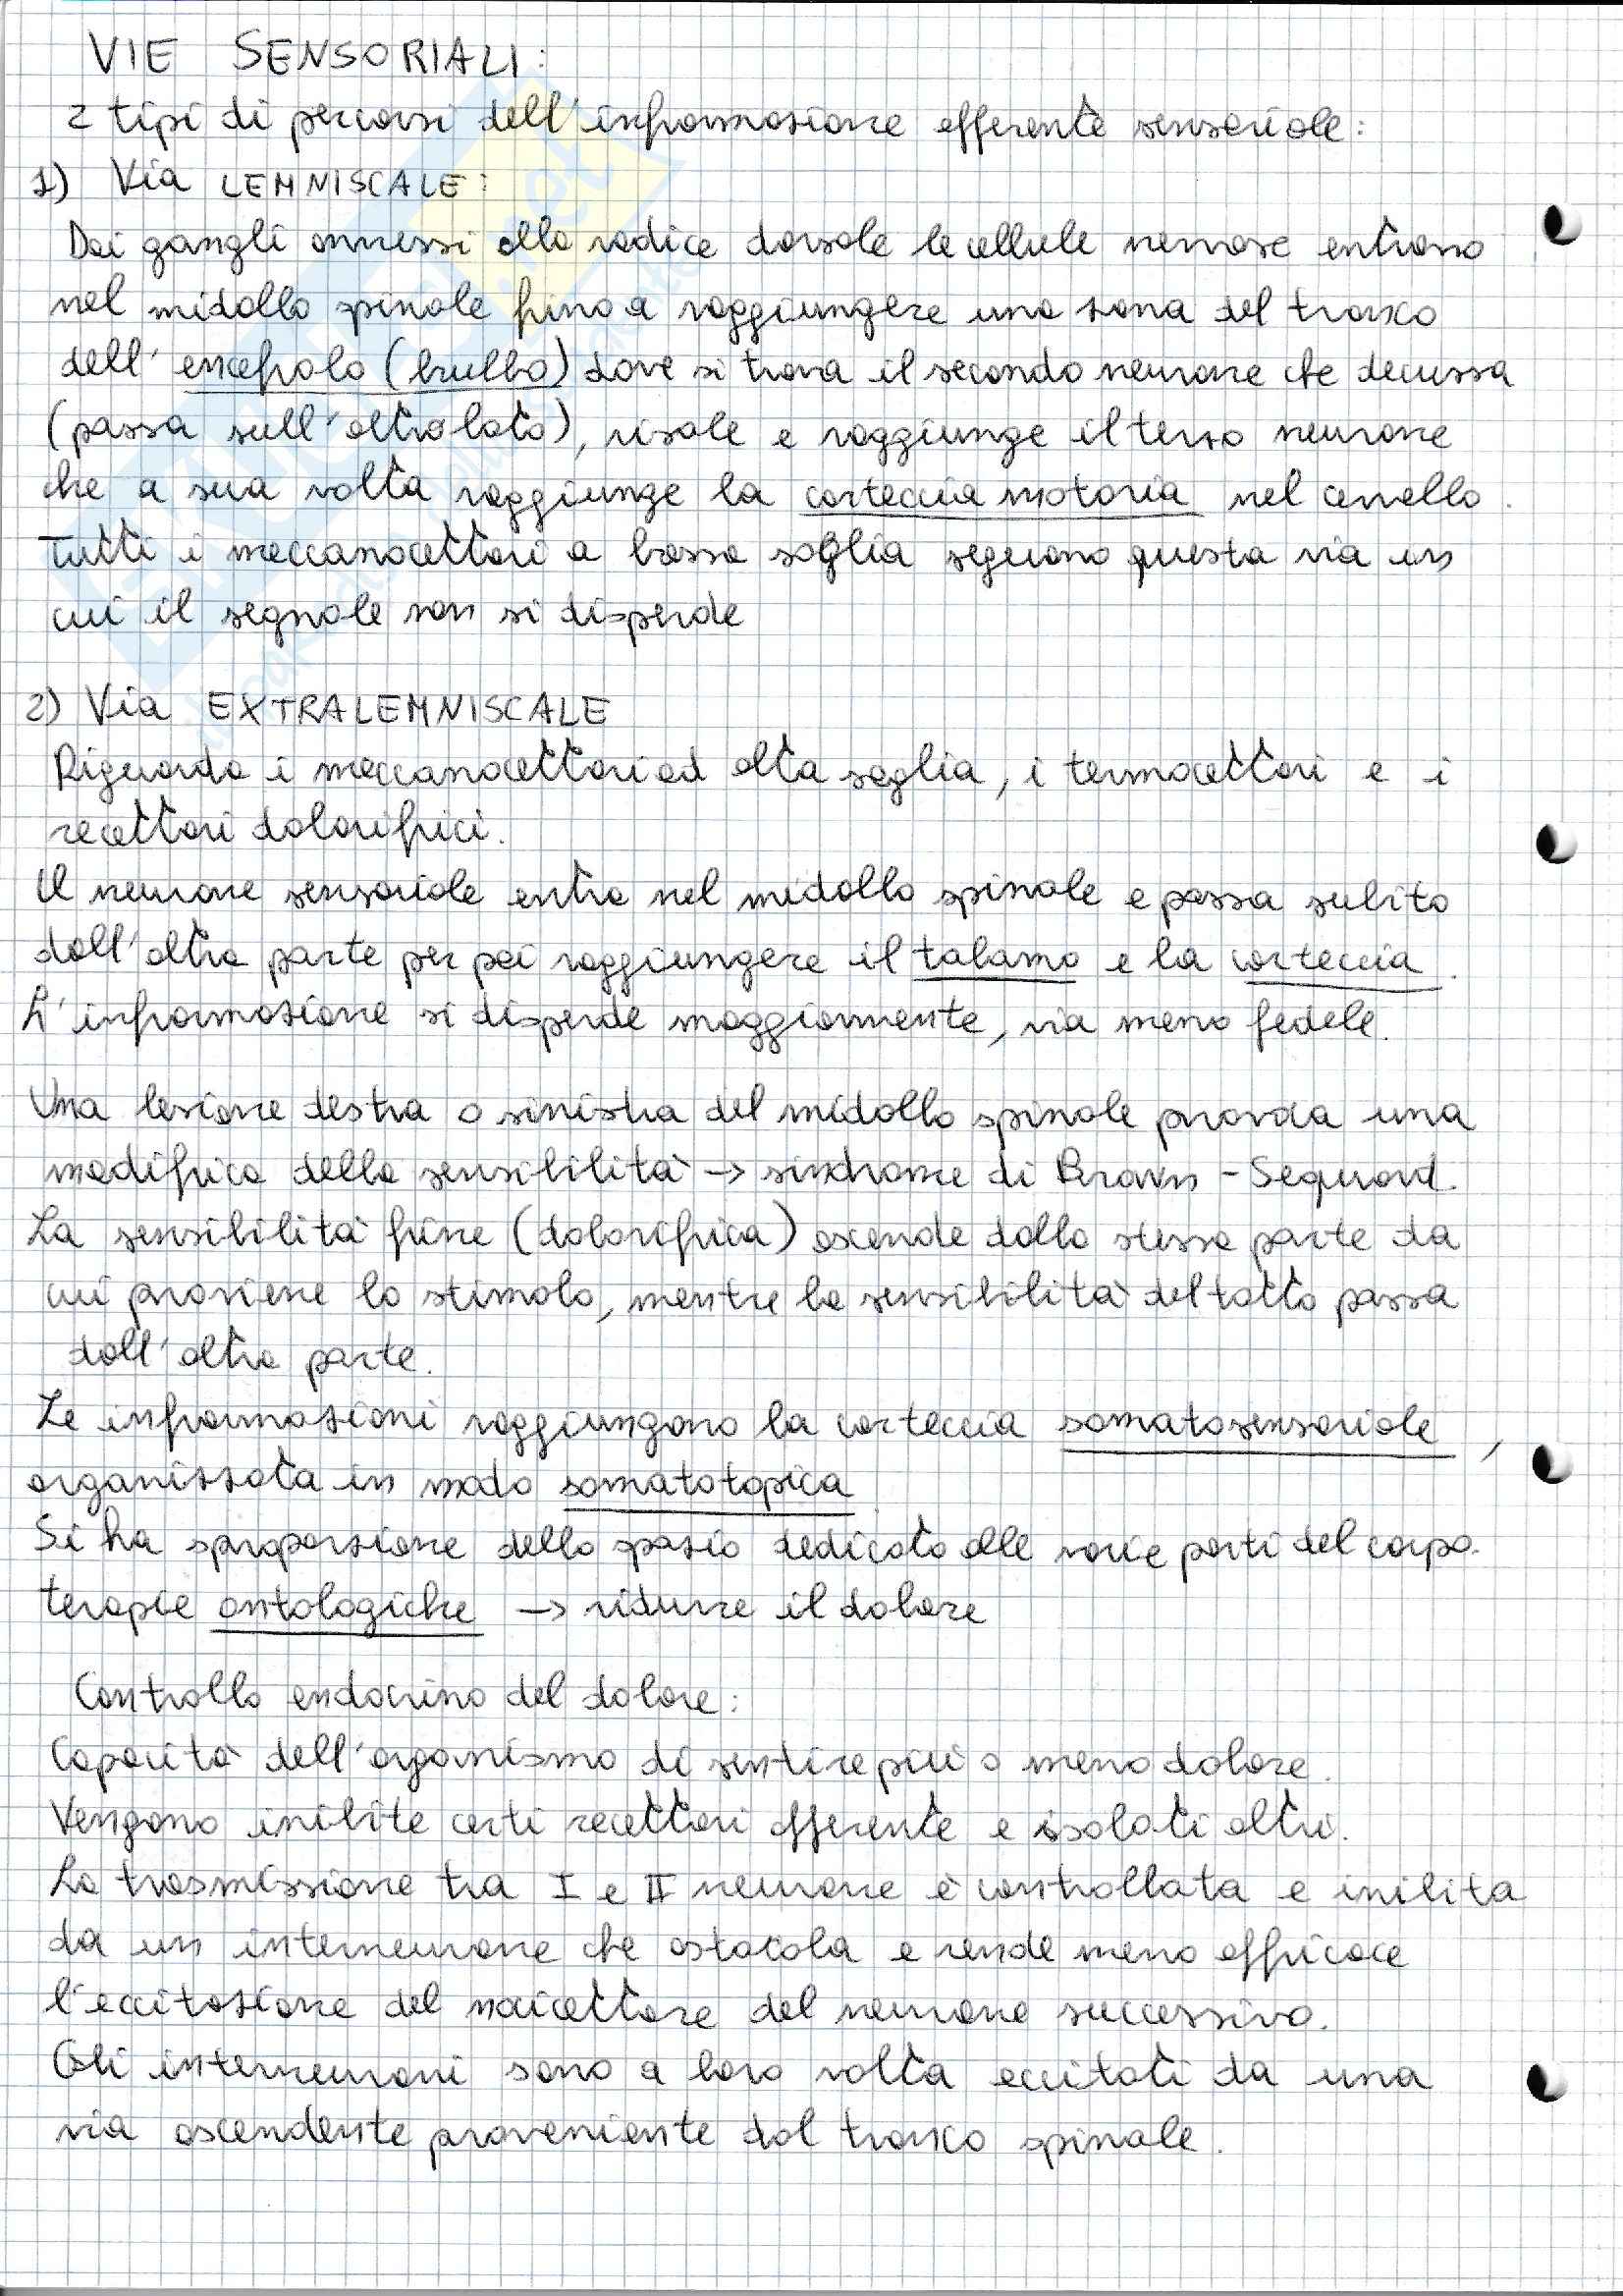 VIE SENSORIALI:
2 tipi di percorsi dell'informazione afferente sensoriale:
1) Via LEMNISCALE:
Dai gangli annessi alla radice dorsale le cellule nervose entrano
nel midollo spinale fino a raggiungere una zona del tronco
dell'encefalo (bulbo) dove si trova il secondo neurone che decussa
(passa sull'altro lato), risale e raggiunge il terzo neurone
che a sua volta raggiunge la corteccia motoria nel cervello.
Tutti i meccanocettori a bassa soglia seguono questa via in
cui il segnale non si disperde
2) Via EXTRALEMNISCALE
Riguarda i meccanocettori ad alta soglia, i termocettori e i
recettori dolorifici.
Il neurone sensoriale entra nel midollo spinale e passa subito
dall'altra parte per poi raggiungere il talamo e la corteccia.
L'informazione si disperde maggiormente, via meno fedele.
Una lesione destra o sinistra del midollo spinale provoca una
modifica della sensibilità → sindrome di Brown-Sequard.
La sensibilità fine (dolorifica) ascende dalla stessa parte da
cui proviene lo stimolo, mentre la sensibilità del tatto passa
dall'altra parte.
Le informazioni raggiungono la corteccia somatosensoriale,
organizzata in modo somatotopica
Si ha sproporzione dello spazio dedicato alle varie parti del corpo.
terapie antologiche → ridurre il dolore
Controllo endocrino del dolore:
Capacità dell'organismo di sentire più o meno dolore.
Vengono inibite certi recettori afferente e isolati altri.
La trasmissione tra I e II neurone è controllata e inibita
da un interneurone che ostacola e rende meno efficace
l'eccitazione del nocicettore del neurone successivo.
Gli interneuroni sono a loro volta eccitati da una
via ascendente proveniente dal tronco spinale.